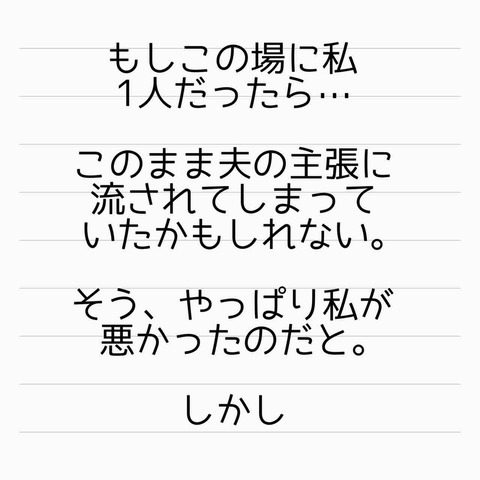 もしこの場に私
1人だったら…
このまま夫の主張に
流されてしまって
いたかもしれない。
そう、やっぱり私が
悪かったのだと。
しかし